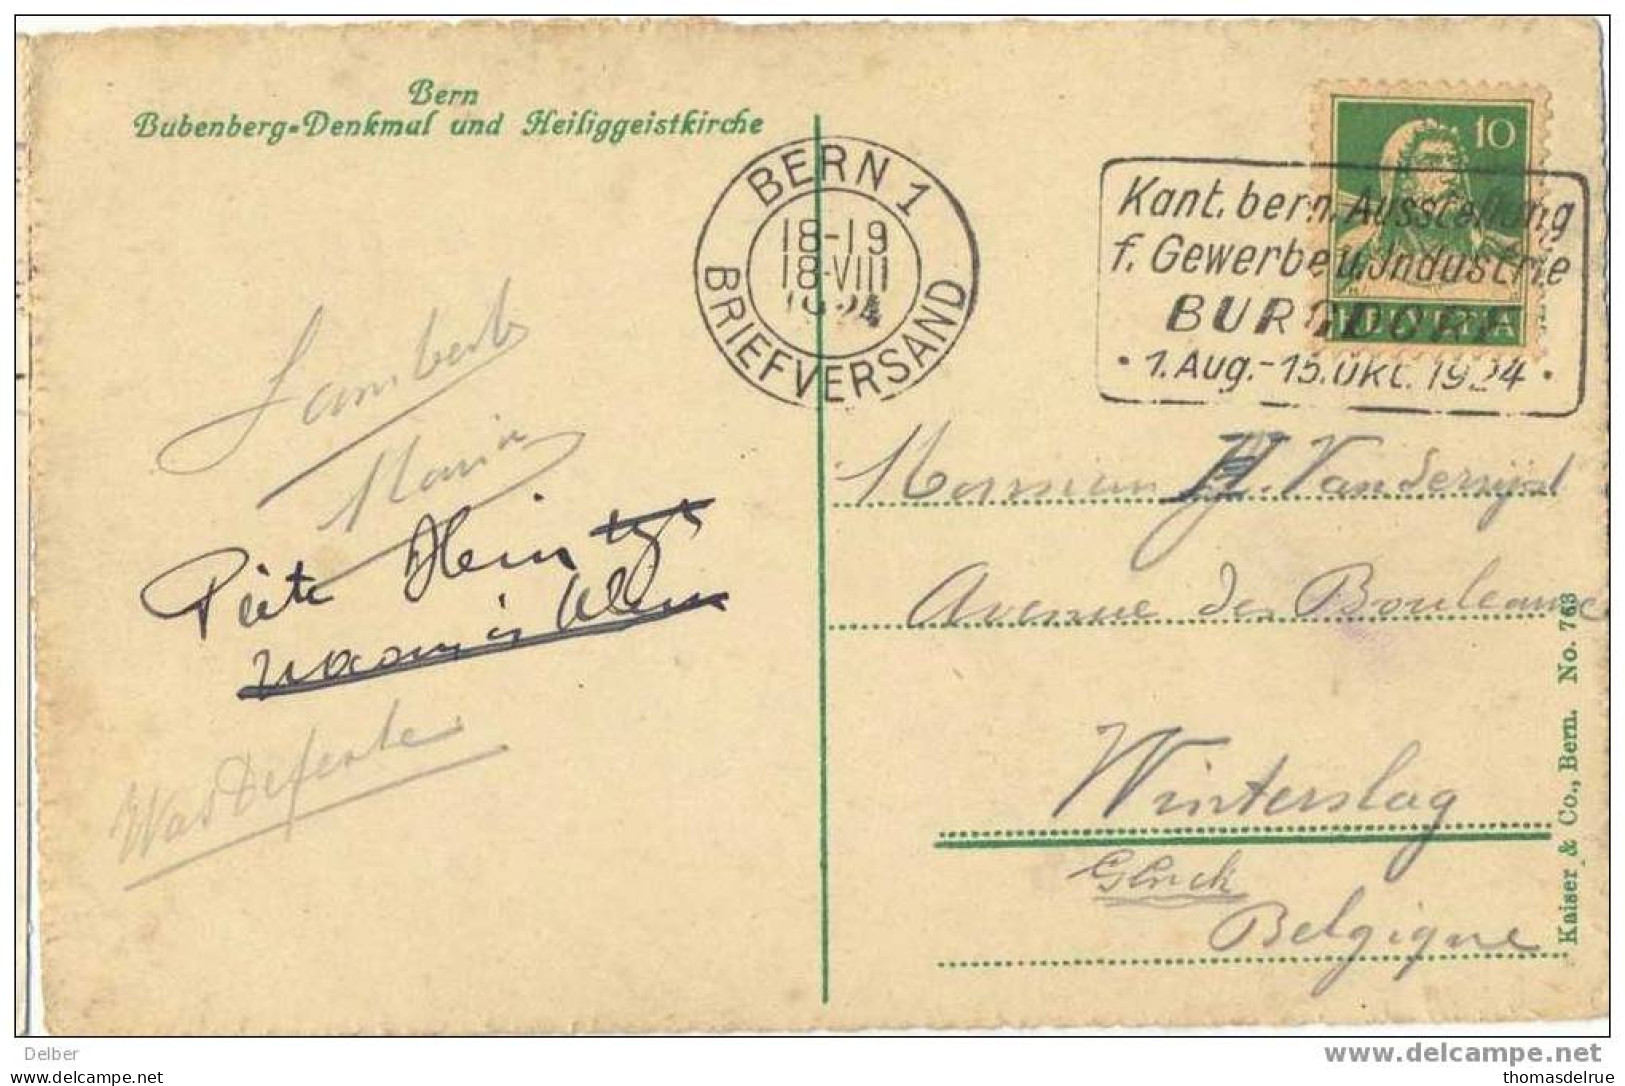 Bern
Bubenberg-Denkmal und Heiliggeistkirche
BERN 1
18-19
18-VIII
1924
BRIEFVERSAND
10
HELVETIA
Kant. bern. Ausstellung
f. Gewerbe u. Industrie
BURGDORF
• 1. Aug. - 15. Okt. 1924 •
Lambert
Maria
Monsieur H. Vanderwijst
Avenue des Bouleaux
Winterslag
Genck
Belgique
Kaiser & Co., Bern. No. 763
Delber
www.delcampe.net
thomasdelrue